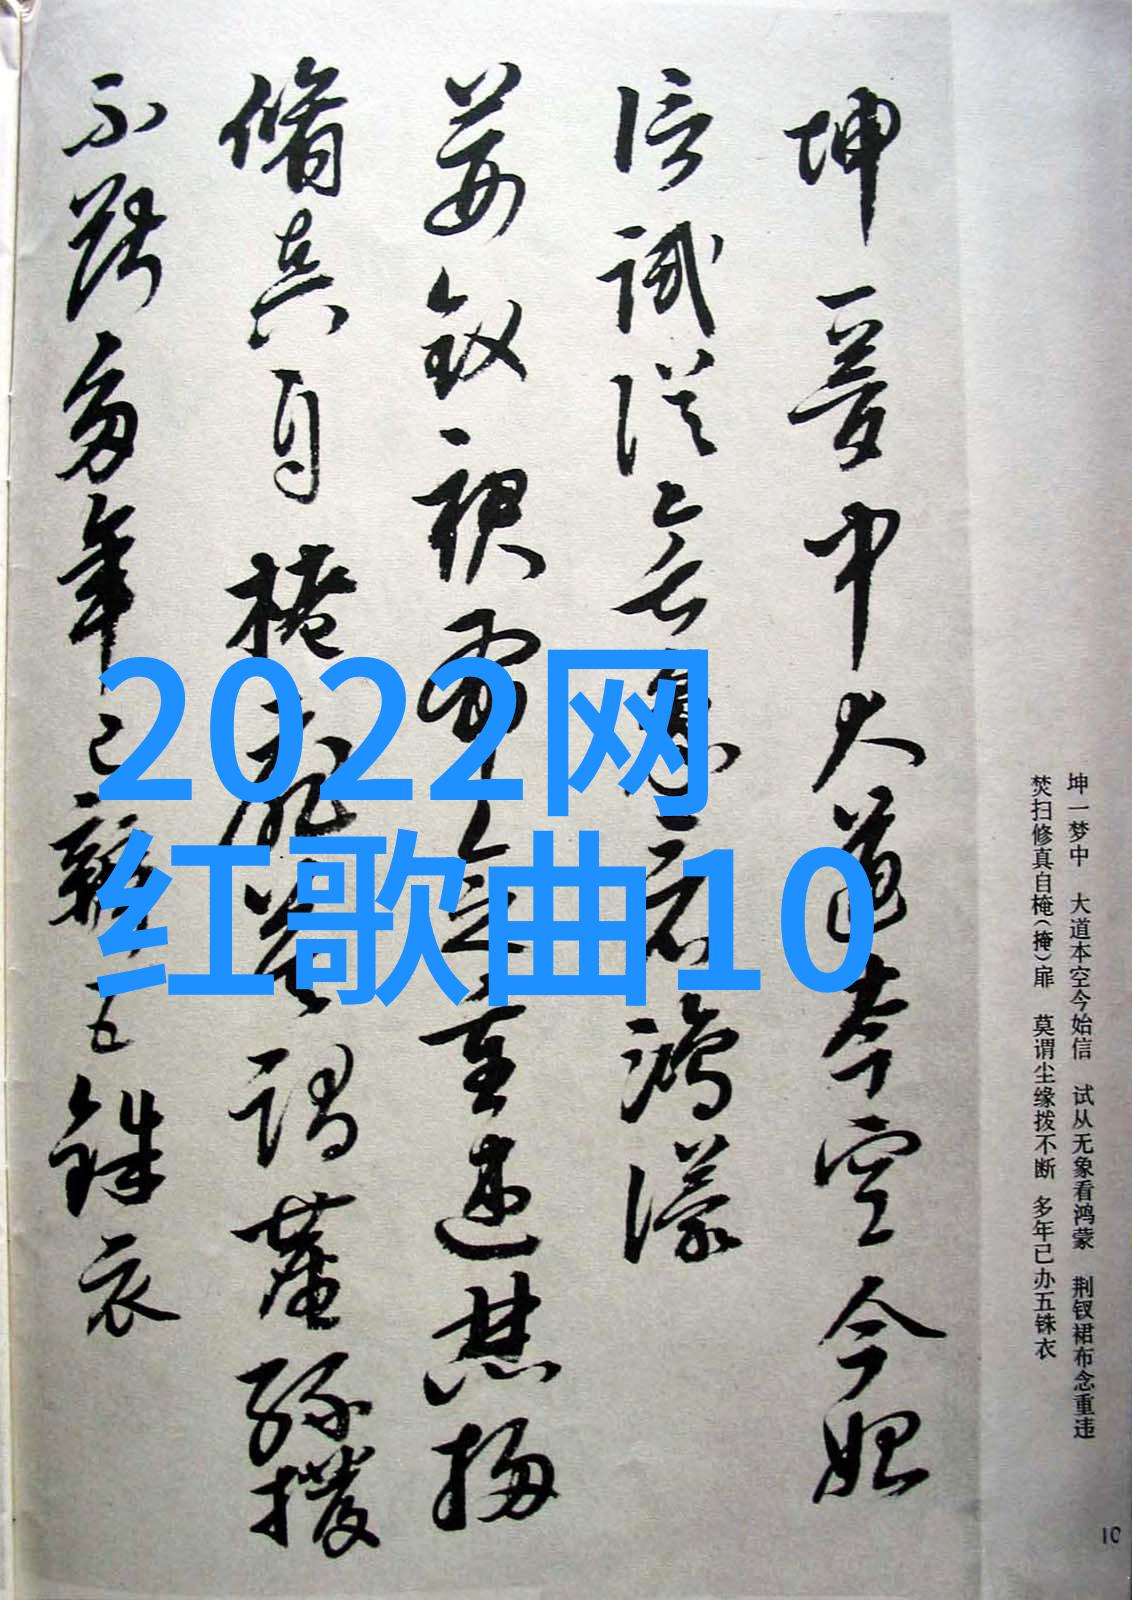 坤一夢中大道本空今始
信試從無象看鴻濛
荊釵裙布念重違焚掃
脩真自扉莫謂塵緣撥
不斷多年已辦五銖衣
坤一梦中　大道本空今始信　试从无象看鸿蒙　荆钗裙布念重违
焚扫修真自（掩）扉　莫谓尘缘拨不断　多年已办五铢衣
10
2022网
红歌曲10